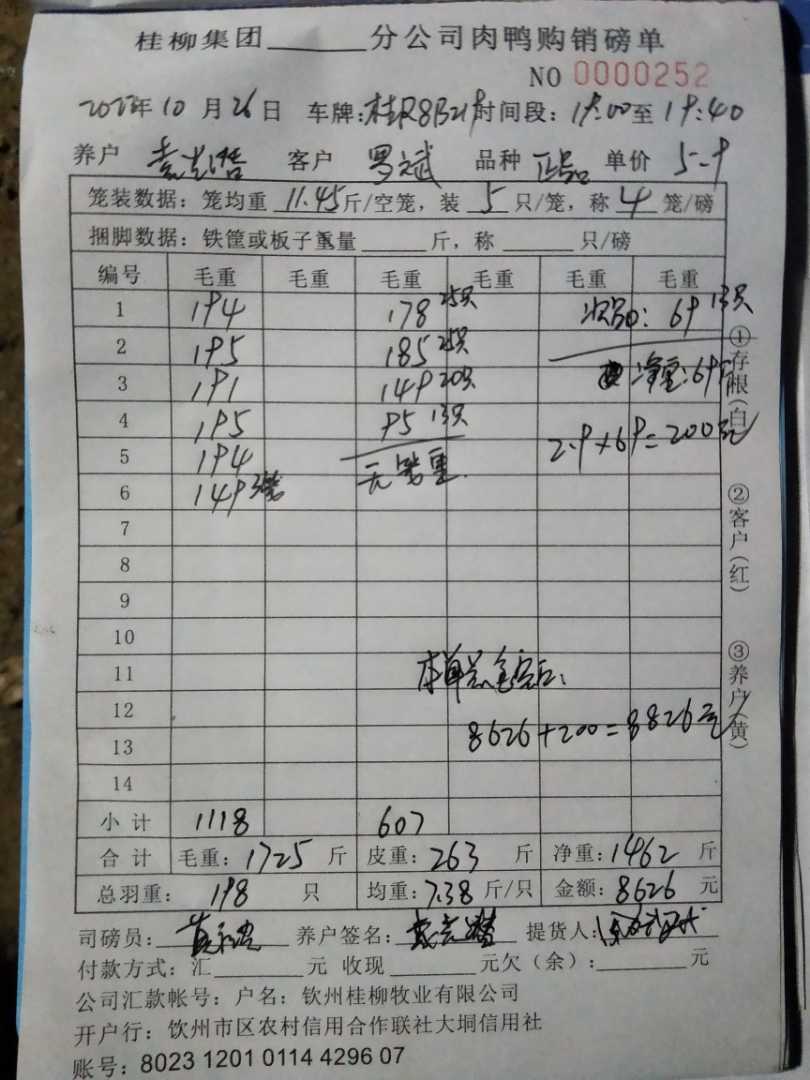 桂柳集团______分公司肉鸭购销磅单
NO 0000252
年10月26日 车牌:桂R8B219 时间段:19:00至19:40
养户 客户 罗斌 品种 正品 单价 5.9
笼装数据:笼均重 11.45斤/空笼,装 5 只/笼,称 4 笼/磅
捆脚数据:铁筐或板子重量______斤,称______只/磅
编号 毛重 毛重 毛重 毛重 毛重 毛重
1 194 178 25只 次品: 69 13只
2 195 185 25只
3 191 149 20只 净重:69斤
4 195 95 13只 2.9×69=200元
5 194 无笼重
6 149 3笼
7
8
9
10
11 本单总金额为:
12 8626+200=8826元
13
14
小计 1118 607
合计 毛重:1725 斤 皮重:263 斤 净重:1462 斤
总羽重: 198 只 均重:7.38 斤/只 金额:8626 元
司磅员: 养户签名: 提货人:
付款方式:汇______元 收现______元欠(余):______元
公司汇款帐号:户名:钦州桂柳牧业有限公司
开户行:钦州市区农村信用合作联社大垌信用社
账号:8023 1201 0114 4296 07
①存根(白)
②客户(红)
③养户(黄)